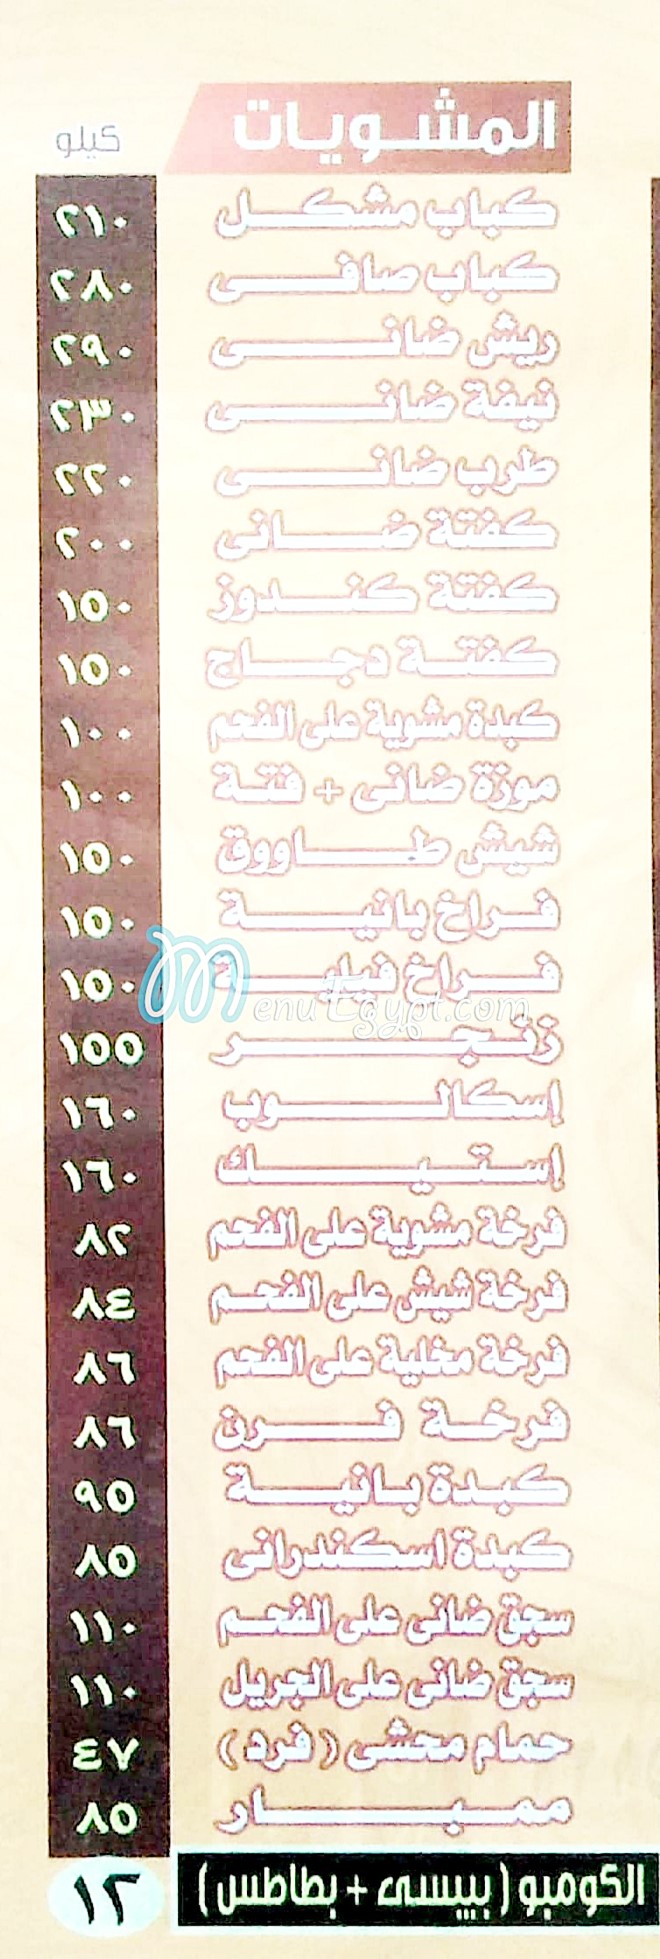 المشويات كيلو
كباب مشكل ٢١٠
كباب صافى ٢٨٠
ريش ضانى ٢٩٠
نيفة ضانى ٢٣٠
طرب ضانى ٢٢٠
كفتة ضانى ٢٠٠
كفتة كندوز ١٥٠
كفتة دجاج ١٥٠
كبدة مشوية على الفحم ١٠٠
موزة ضانى + فتة ١٠٠
شيش طاووق ١٥٠
فراخ بانية ١٥٠
فراخ فيلية ١٥٠
MenuEgypt.com
زنجر ١٥٥
إسكالوب ١٦٠
إستيك ١٦٠
فرخة مشوية على الفحم ٨٢
فرخة شيش على الفحم ٨٤
فرخة مخلية على الفحم ٨٦
فرخة فرن ٨٦
كبدة بانية ٩٥
كبدة اسكندرانى ٨٥
سجق ضانى على الفحم ١١٠
سجق ضانى على الجريل ١١٠
حمام محشى ( فرد ) ٤٧
ممبار ٨٥
الكومبو ( بيبسى + بطاطس ) ١٢